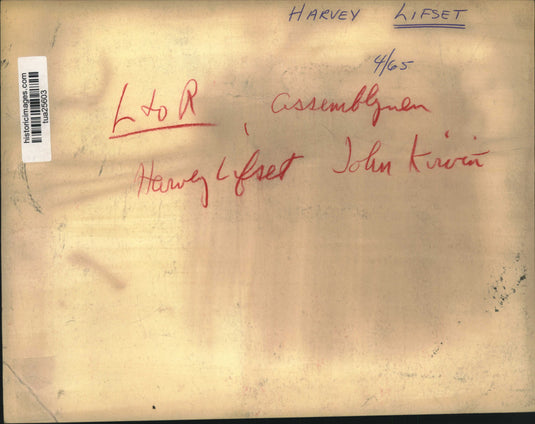 HARVEY LIFSET
4/65
L to R, assemblymen
Harvey Lifset John Kirvin
historicimages.com
tua25603